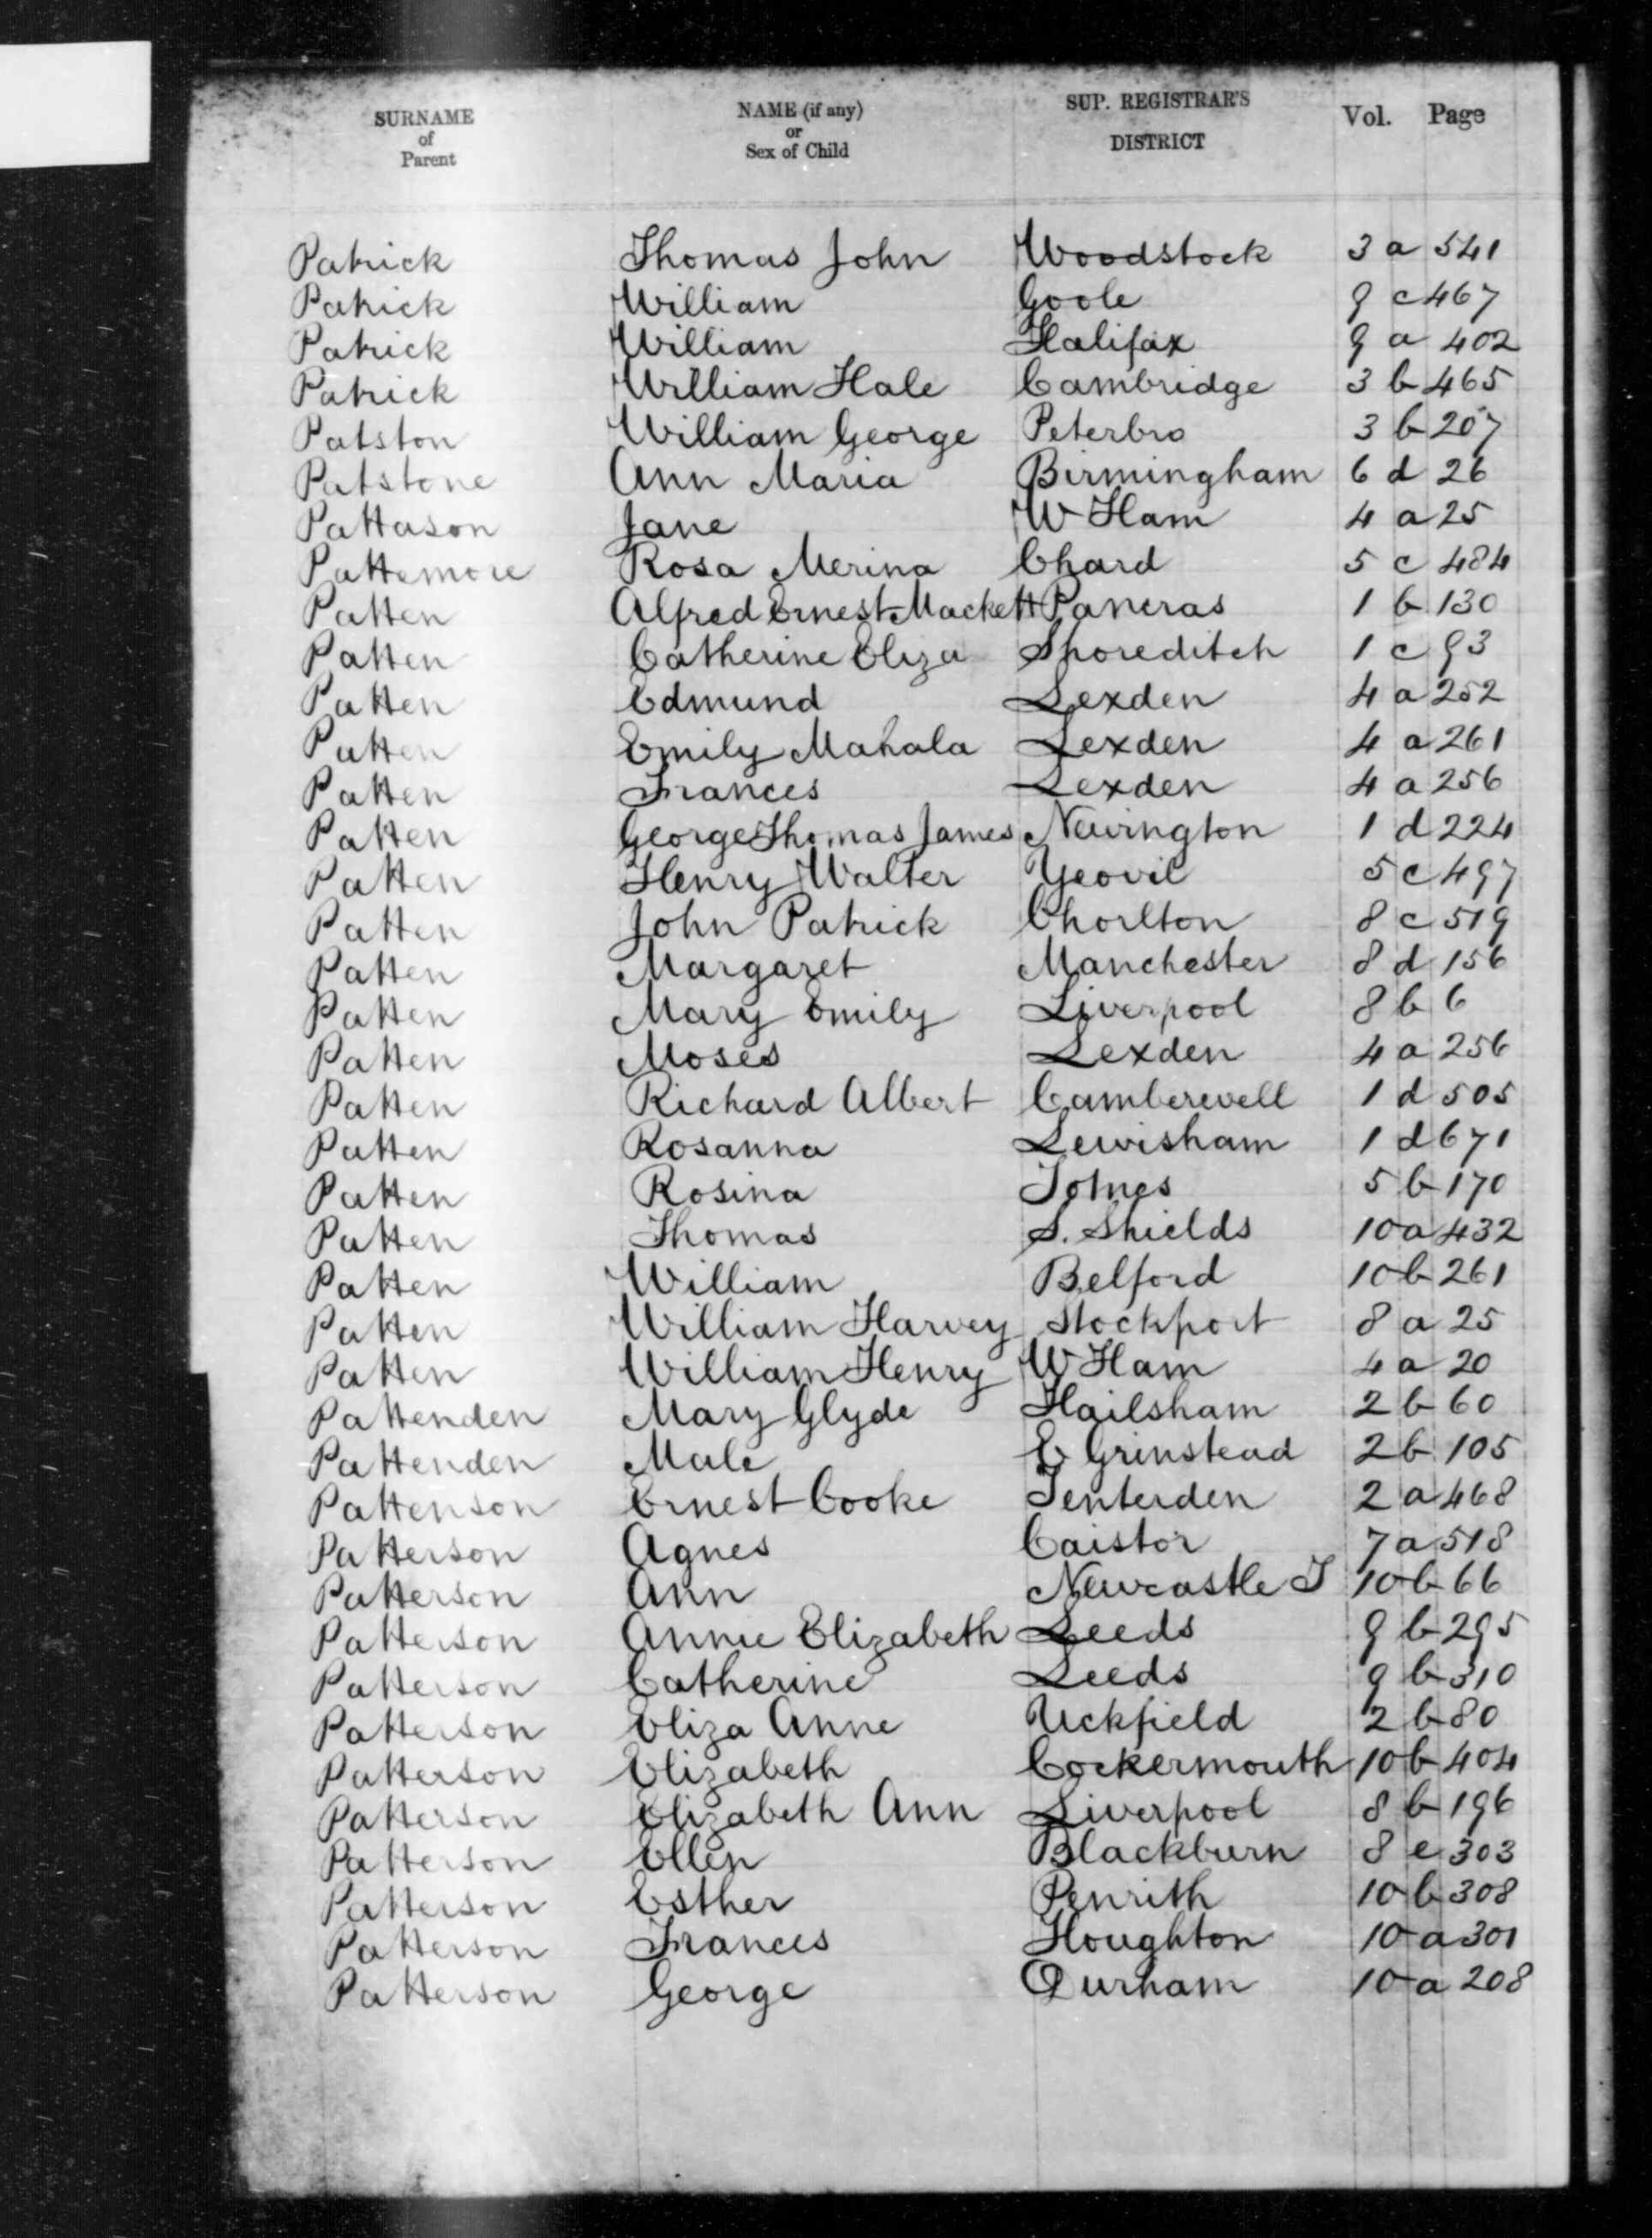 SURNAME of Parent NAME (if any) or Sex of Child SUP. REGISTRAR'S DISTRICT Vol. Page
Patrick Thomas John Woodstock 3 a 541
Patrick William Goole 9 c 467
Patrick William Halifax 9 a 402
Patrick William Hale Cambridge 3 b 465
Patston William George Peterbro 3 b 207
Patstone Ann Maria Birmingham 6 d 26
Pattason Jane W Ham 4 a 25
Pattemore Rosa Merina Chard 5 c 484
Patten Alfred Ernest Mackett Pancras 1 b 130
Patten Catherine Eliza Shoreditch 1 c 93
Patten Edmund Lexden 4 a 252
Patten Emily Mahala Lexden 4 a 261
Patten Frances Lexden 4 a 256
Patten George Thomas James Newington 1 d 224
Patten Henry Walter Yeovil 5 c 497
Patten John Patrick Chorlton 8 c 519
Patten Margaret Manchester 8 d 156
Patten Mary Emily Liverpool 8 b 6
Patten Moses Lexden 4 a 256
Patten Richard Albert Camberwell 1 d 505
Patten Rosanna Lewisham 1 d 671
Patten Rosina Totnes 5 b 170
Patten Thomas S. Shields 10 a 432
Patten William Belford 10 b 261
Patten William Harvey Stockport 8 a 25
Patten William Henry W Ham 4 a 20
Pattenden Mary Glyde Hailsham 2 b 60
Pattenden Male E Grinstead 2 b 105
Pattenson Ernest Cooke Tenterden 2 a 468
Patterson Agnes Caistor 7 a 518
Patterson Ann Newcastle T 10 b 66
Patterson Annie Elizabeth Leeds 9 b 295
Patterson Catherine Leeds 9 b 310
Patterson Eliza Anne Uckfield 2 b 80
Patterson Elizabeth Cockermouth 10 b 404
Patterson Elizabeth Ann Liverpool 8 b 196
Patterson Ellen Blackburn 8 e 303
Patterson Esther Penrith 10 b 308
Patterson Frances Houghton 10 a 301
Patterson George Durham 10 a 208